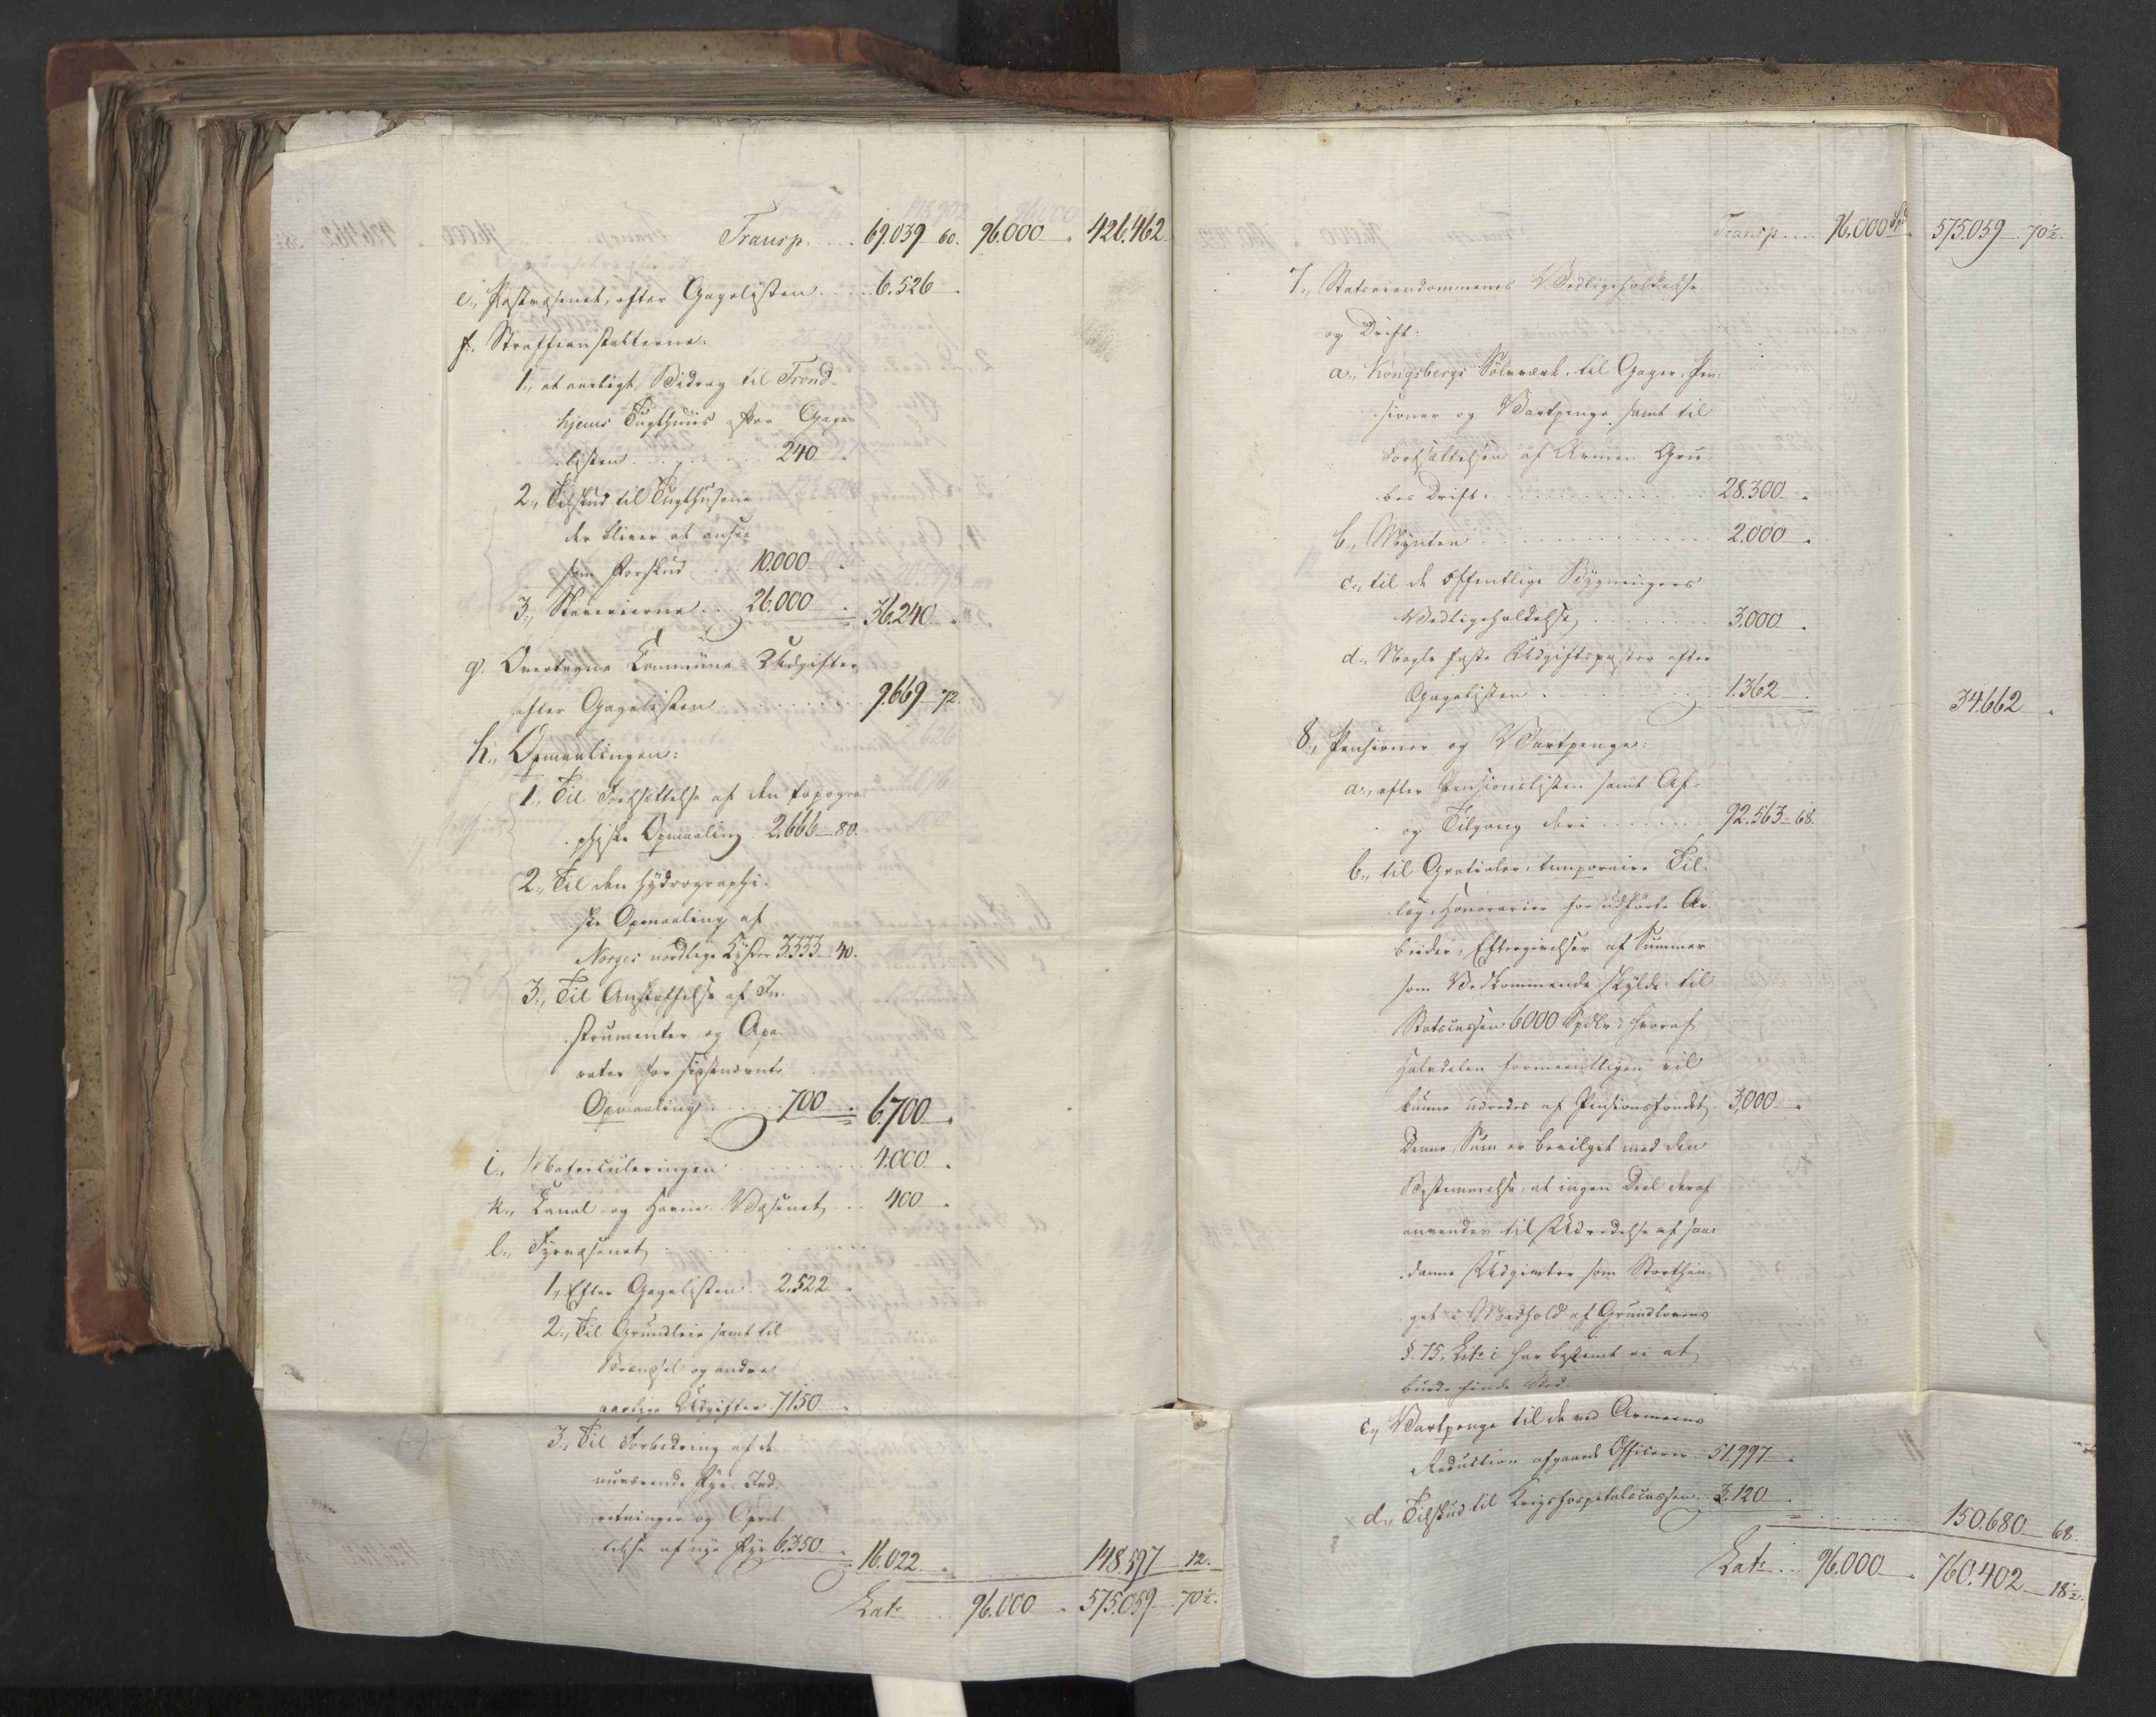 Transp. . . . 69.039 60. 96.000 . 426.462
e., Postvæsenet, efter Gagelisten . . . . 6.526 .
f., Straffeanstalterne:
1., et aarligt Bidrag til Trond-
hjems Tugthuus efter Gage-
listen . . . . . . 240 .
2., Tilskud til Tugthusene
der bliver at ansee
som Forskud . . . 10.000 .
3., Slaverierne . . 26.000 . 36.240 .
g., Overtagne Commüne-Udgifter
efter Gagelisten . . . . . . . . 9.669 72.
h., Opmaalingen:
1., Til Fortsættelse af den topogra-
phiske Opmaaling 2.666 80.
2., Til den hydrographi-
ske Opmaaling af
Norges nordlige Kyster 3.333 40.
3., Til Anskaffelse af In-
strumenter og Apa-
rater for sidstnævnte
Opmaaling . . . . 700 . 6.700 .
i., Matriculeringen . . . . . . . . 4.000 .
k., Canal- og Havne-Væsenet . . . 400 .
l., Fyrvæsenet:
1., Efter Gagelisten 2.522 .
2., Til Grundleie samt til
Brændsel og andre
aarlige Udgifter 7150 .
3., Til Forbedring af de
nuværende Fyr-Ind-
retninger og Opret-
telse af nye Fyr 6.350 . 16.022 . . . . . . 148.597 12.
Lat. . . . 96.000 . 575.059 70½.
Transp . . . . 96.000 Spd. 575.059 70½.
7., Statseiendommenes Vedligeholdelse
og Drift:
a., Kongsbergs Sölvværk, til Gager, Pen-
sioner og Vartpenge samt til
Fortsættelsen af Armen Gru-
bes Drift . . . . . . . . . . . . 28.300 .
b., Mynten . . . . . . . . . . . . 2.000 .
c., til de offentlige Bygningers
Vedligeholdelse . . . . . . . . 3.000 .
d., Nogle faste Udgiftsposter efter
Gagelisten . . . . . . . . . . 1.362 . . . . . 34.662 .
8., Pensioner og Vartpenge:
a., efter Pensionslisten samt Af-
og Tilgang deri . . . . . . . 92.563 68.
b., til Gratialer, temporaire Til-
læg, Honorarier for udførte Ar-
beider, Eftergivelser af Summer
som Vedkommende skylde til
Statscassen 6000 Spdlr, hvoraf
Halvdelen formeentligen vil
kunne udredes af Pensionsfondet 3.000 .
Denne Sum er bevilget med den
Bestemmelse at ingen Deel deraf
anvendes til Udredelse af saa-
danne Udgivter som Storthin-
get i Medhold af Grundlovens
§. 75. Litr. i har bestemt ei at
burde finde Sted.
c., Vartpenge til de ved Armeens
Reduction afgaaede Officerer 51.997 .
d., Tilskud til Krigshospitalscassen 3.120 . . . . . . . 150.680 68.
Lat. . . 96.000 . 760.402 18½.